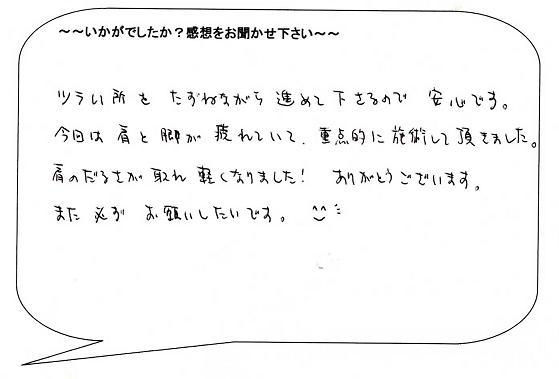 ～～いかがでしたか？感想をお聞かせ下さい～～
ツラい所を たずねながら 進めて下さるので 安心です。
今日は肩と脚が疲れていて、重点的に施術して頂きました。
肩のだるさが取れ軽くなりました！ ありがとうございます。
また必ず お願いしたいです。